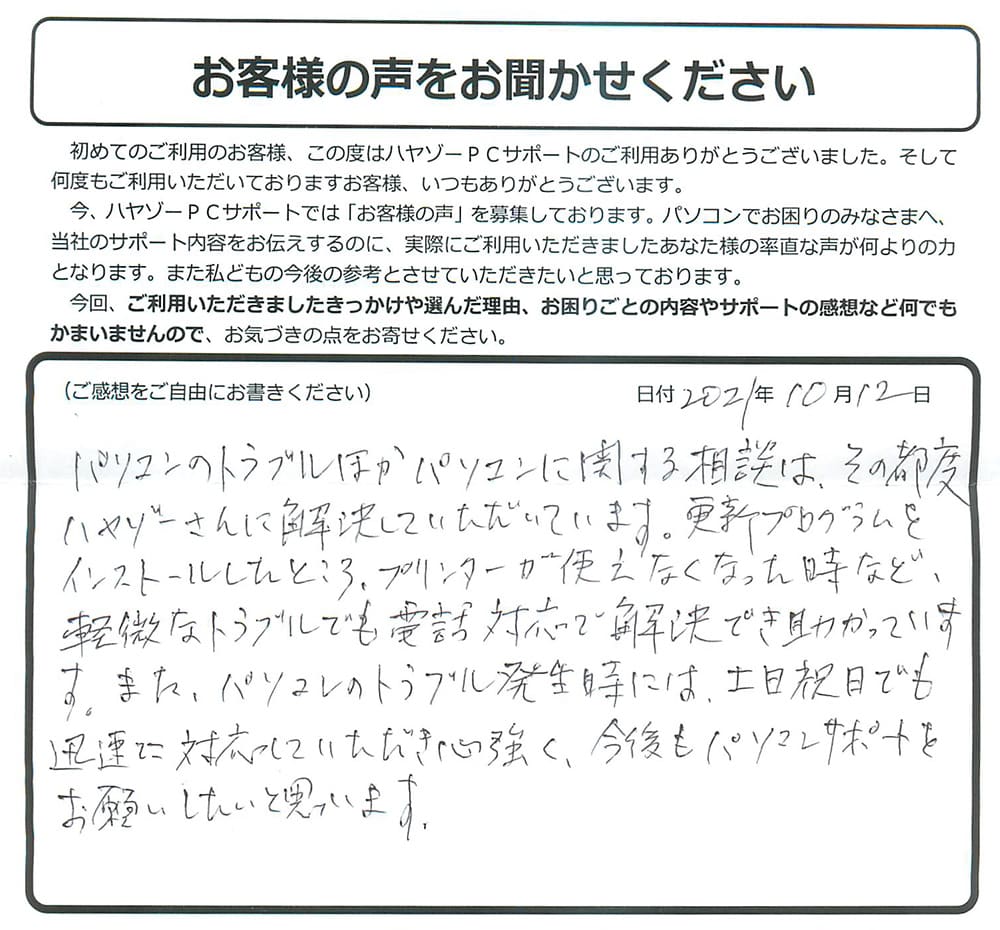 お客様の声をお聞かせください
初めてのご利用のお客様、この度はハヤゾーＰＣサポートのご利用ありがとうございました。そして
何度もご利用いただいておりますお客様、いつもありがとうございます。
今、ハヤゾーＰＣサポートでは「お客様の声」を募集しております。パソコンでお困りのみなさまへ、
当社のサポート内容をお伝えするのに、実際にご利用いただきましたあなた様の率直な声が何よりの力
となります。また私どもの今後の参考とさせていただきたいと思っております。
今回、ご利用いただきましたきっかけや選んだ理由、お困りごとの内容やサポートの感想など何でも
かまいませんので、お気づきの点をお寄せください。
（ご感想をご自由にお書きください） 日付 2021年 10月12日
パソコンのトラブルほかパソコンに関する相談は、その都度
ハヤゾーさんに解決していただいています。更新プログラムを
インストールしたところ、プリンターが使えなくなった時など、
軽微なトラブルでも電話対応で解決でき助かっていま
す。また、パソコンのトラブル発生時には、土日祝日でも
迅速に対応していただき心強く、今後もパソコンサポートを
お願いしたいと思っています。